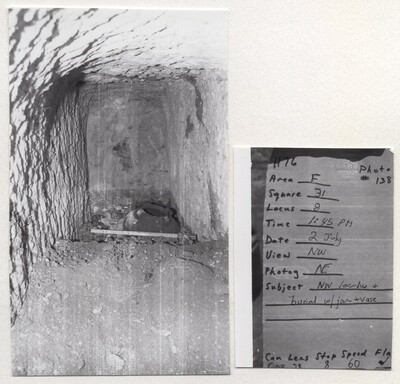 H76
Photo
# 138
Area F
Square 31
Locus 8
Time 1:45 PM
Date 2 July
View NW
Photog NE
Subject NW loculus +
burial w/ jar + vase
Cam Lens Stop Speed Flg
8 60